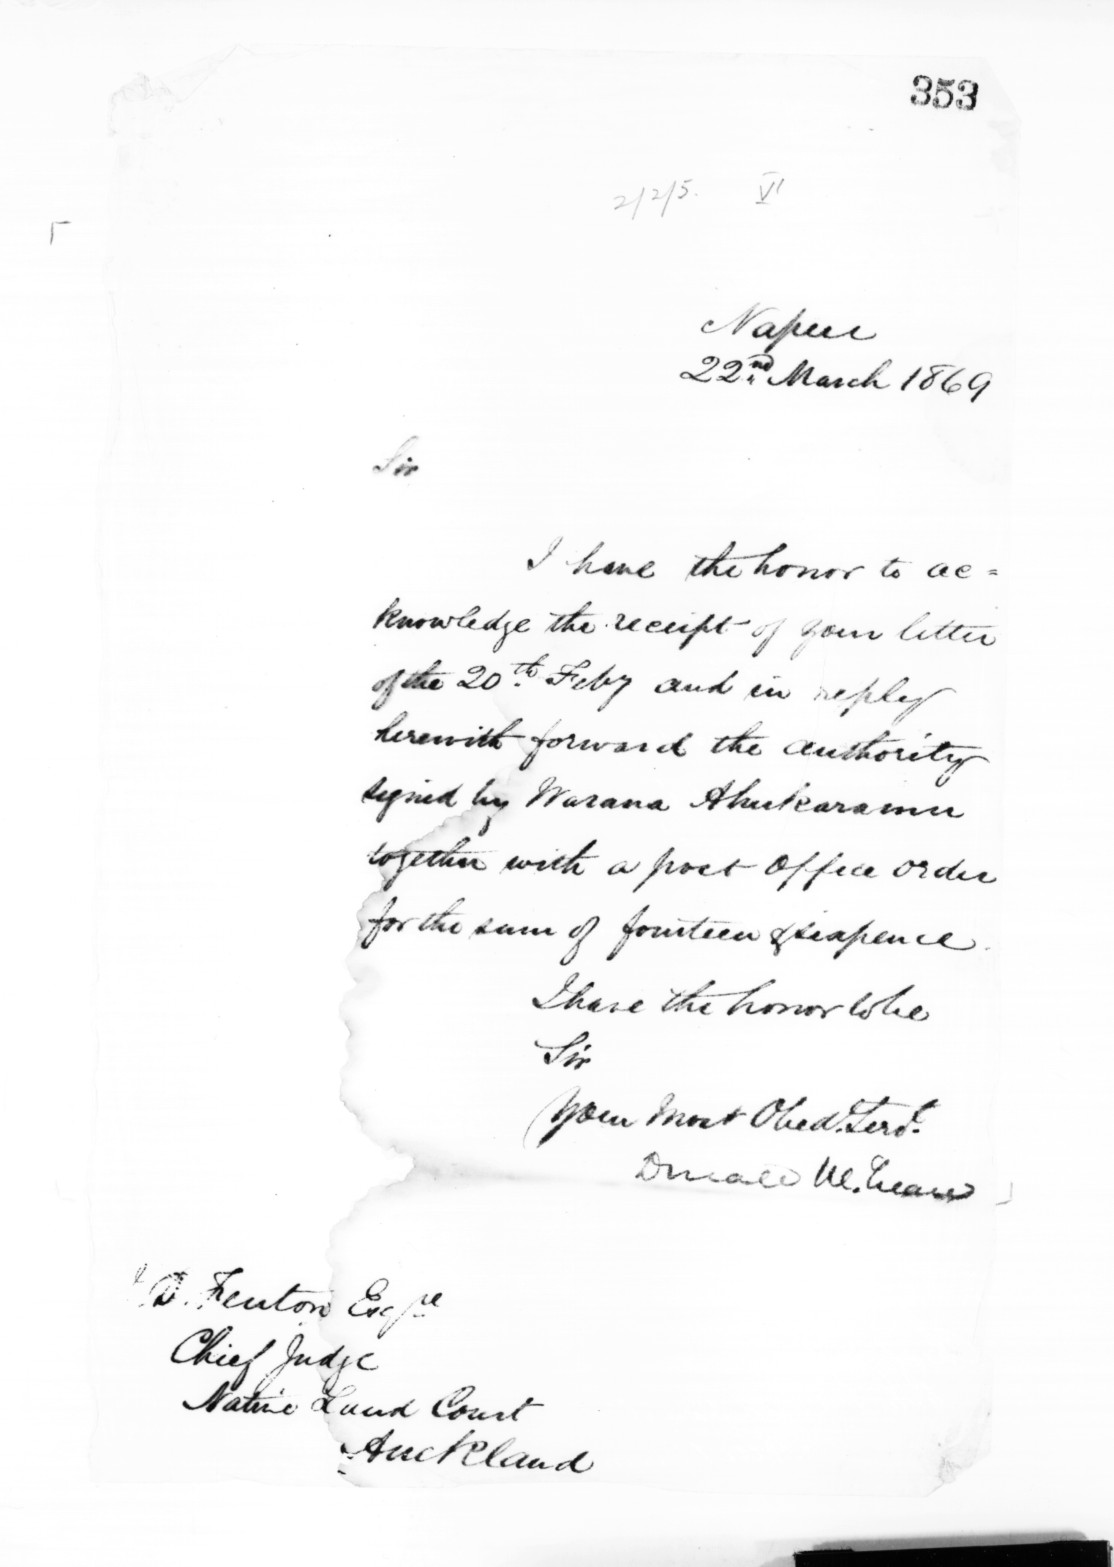 353
2/2/5. VI
Napier
22nd March 1869
Sir
I have the honor to ac=
knowledge the receipt of your letter
of the 20th Feby and in reply
herewith forward the authority
signed by Warana Ahukaramu
together with a post Office order
for the sum of fourteen & sixpence.
I have the honor to be
Sir
Your Most Obed. Servt.
Donald McLean
D. Fenton Esqre
Chief Judge
Native Land Court
Auckland